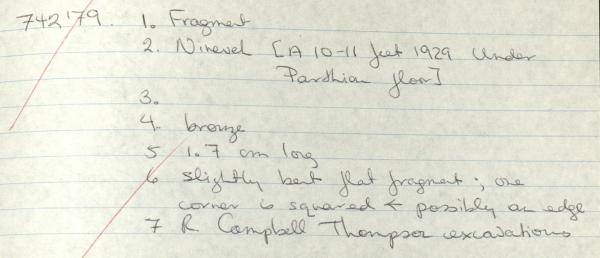 742'79. 1. Fragment
2. Nineveh [A 10-11 feet 1929 Under
Parthian floor]
3.
4. bronze
5 1.7 cm long
6 slightly bent flat fragment; one
corner is squared & possibly an edge
7 R Campbell Thompson excavations